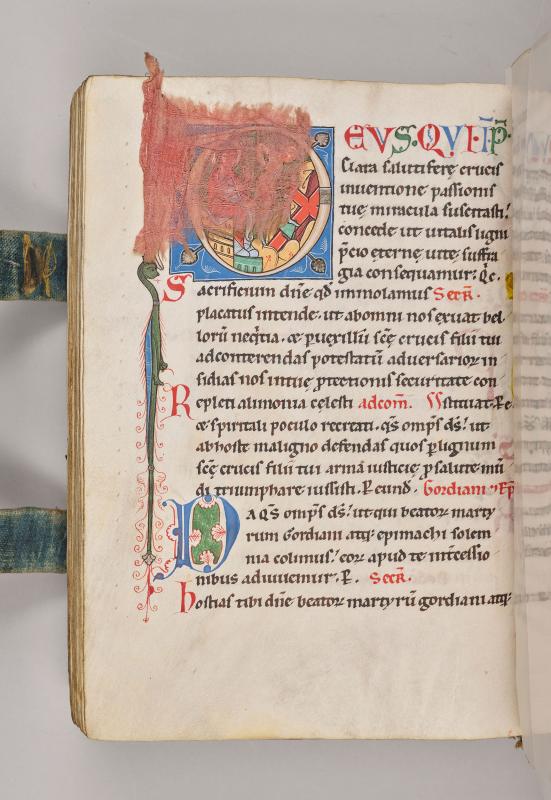 EVS·QVI·IP̄·
clara salutiferę crucis
inuentione passionis
tuę miracula suscitasti!
concede ut uitalis ligni
p̄cio eternę uitę suffra
gia consequamur: Q̄e.
Sacrificium dn̄e qđ immolamus Secr̄.
placatus intende. ut ab omni nos exuat bel
lorū neq̄tia. & p uexillū scę crucis filii tui
ad conterendas potestatū aduersarior in
sidias nos intuę ꝓtectionis securitate con
Repleti alimonia celesti adcom̄. stituat. P. e.
& spiritali poculo recreati. q̄s omp̄s ds̄! ut
ab hoste maligno defendas quos p lignum
scę crucis filii tui arma iusticię p salute mūdi
di triumphare iussisti. P. eund. Gordiani & Ep̄
Da q̄s omp̄s ds̄! ut qui beator marty
rum Gordiani atq; epimachi solem
nia colimus! eor apud te int̄cessio
nibus adiuuemur. P. Secr̄.
hostias tibi dn̄e beator martyrū gordiani atq;